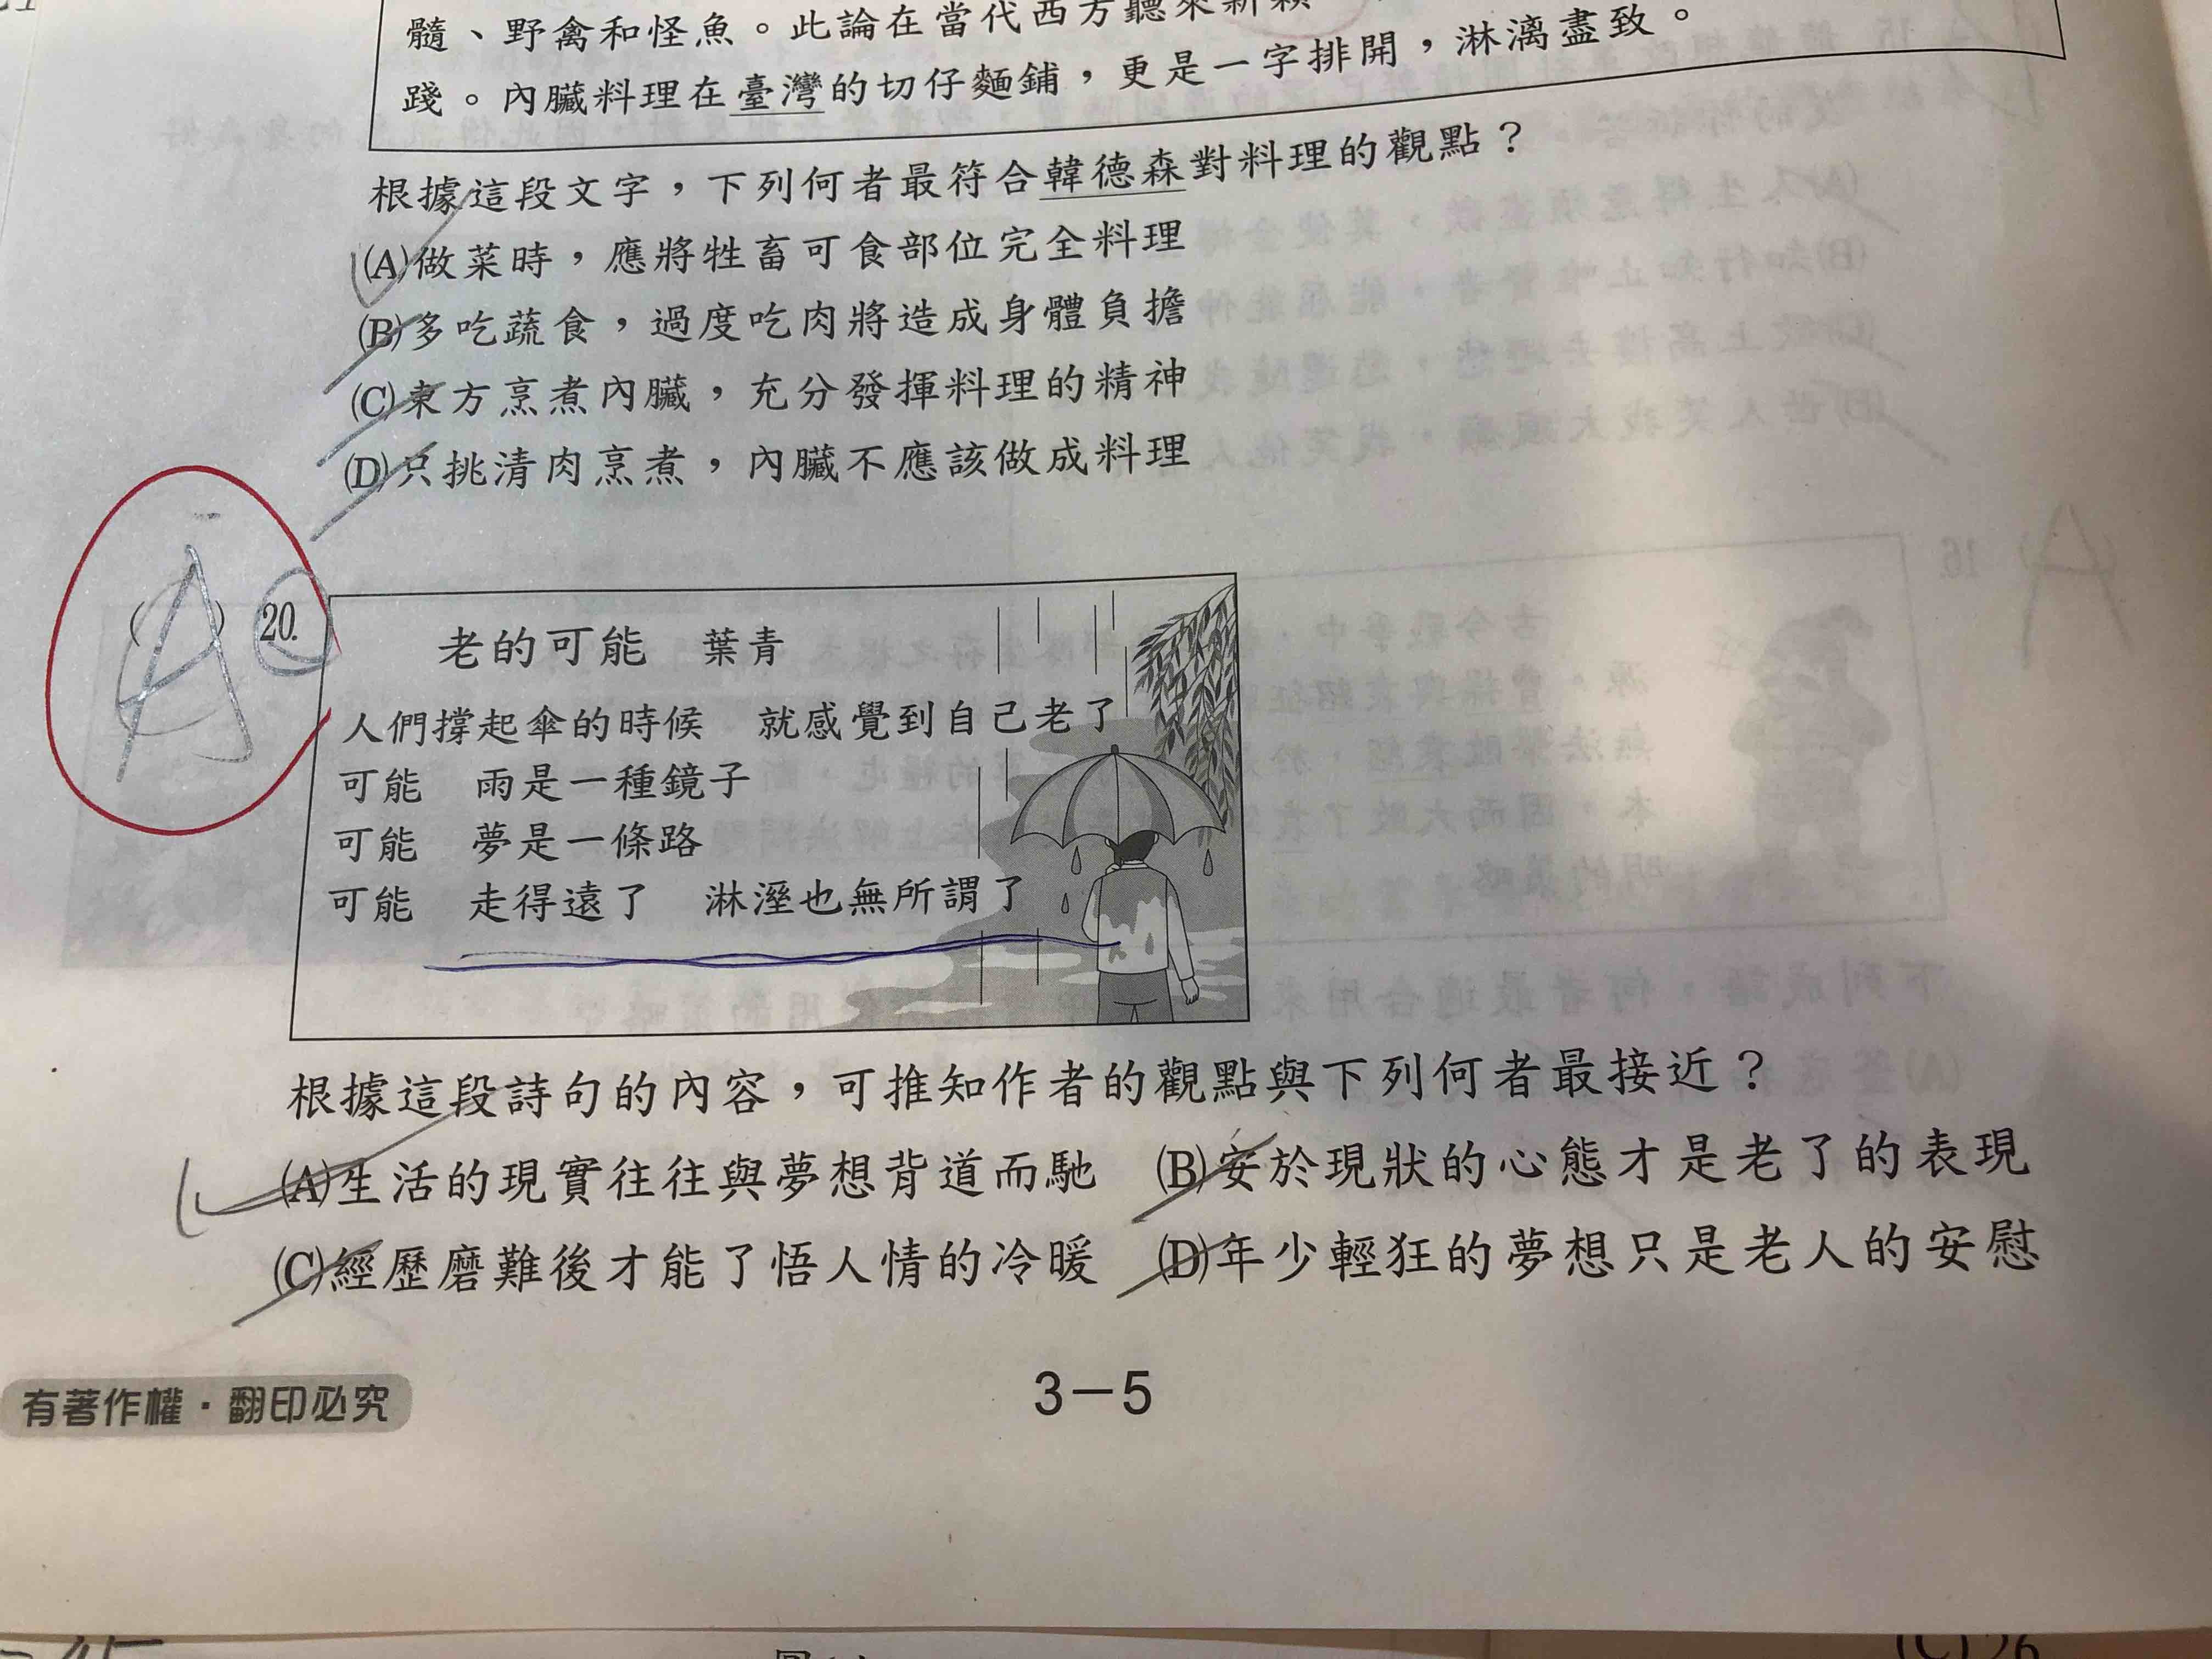 髓、野禽和怪魚。此論在當代西方聽來新穎
踐。內臟料理在臺灣的切仔麵鋪,更是一字排開,淋漓盡致。
根據這段文字,下列何者最符合韓德森對料理的觀點?
(A)做菜時,應將牲畜可食部位完全料理
(B)多吃蔬食,過度吃肉將造成身體負擔
(C)東方烹煮內臟,充分發揮料理的精神
(D)只挑清肉烹煮,內臟不應該做成料理
(A) 20.
老的可能 葉青
人們撐起傘的時候 就感覺到自己老了
可能 雨是一種鏡子
可能 夢是一條路
可能 走得遠了 淋溼也無所謂了
根據這段詩句的內容,可推知作者的觀點與下列何者最接近?
(A)生活的現實往往與夢想背道而馳 (B)安於現狀的心態才是老了的表現
(C)經歷磨難後才能了悟人情的冷暖 (D)年少輕狂的夢想只是老人的安慰
3-5
有著作權·翻印必究
(C) 26